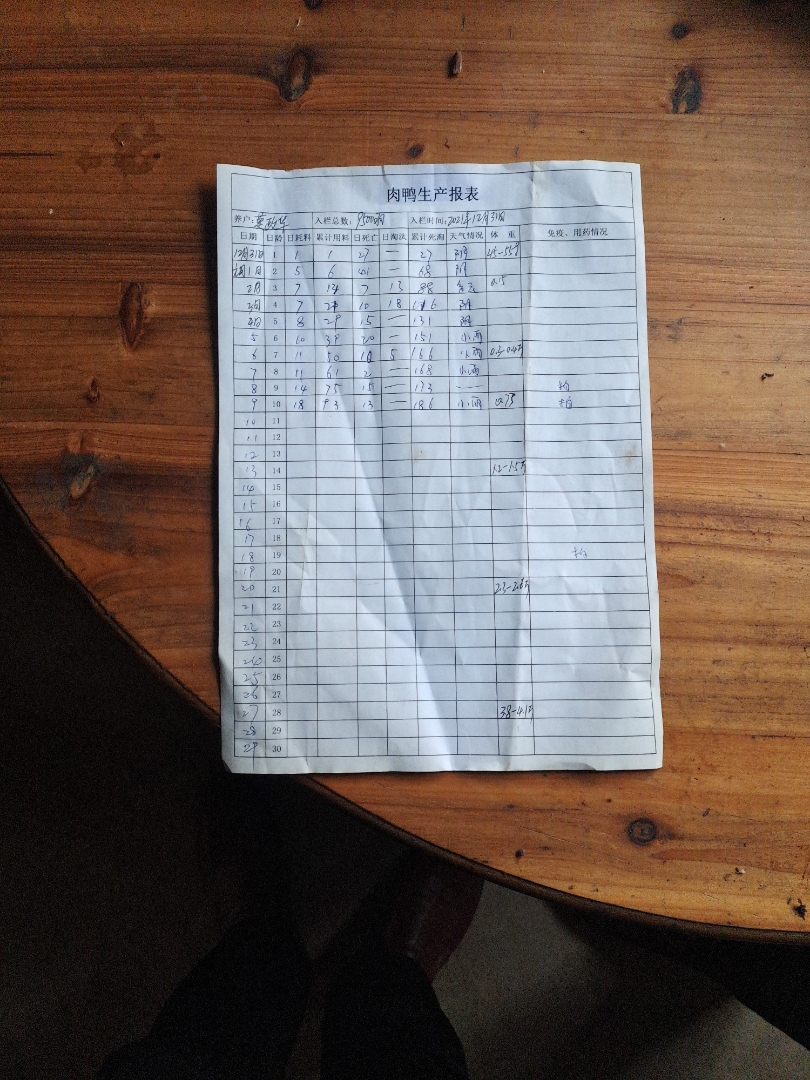 肉鸭生产报表
养户: 入栏总数: 9500 入栏时间: 2021年12月31日
日期 日龄 日耗料 累计用料 日死亡 日淘汰 累计死淘 天气情况 体重 免疫、用药情况
12月31日 1 1 1 27 — 27 阴 45-55g
1月1日 2 5 6 41 — 68 阴
2日 3 7 7 13 88 0.15
3日 4 7 10 18 116 阴
4日 5 8 29 15 — 131 阴
5 6 10 39 20 — 151 小雨
6 7 11 50 10 5 166 小雨 0.3-0.4斤
7 8 11 61 2 — 168 小雨
8 9 14 75 15 — 173 —
9 10 18 93 13 — 186 小雨 0.75
10 11
11 12
12 13
13 14 1.2-1.5斤
14 15
15 16
16 17
17 18
18 19
19 20
20 21 2.3-2.6斤
21 22
22 23
23 24
24 25
25 26
26 27
27 28 3.8-4.1斤
28 29
29 30